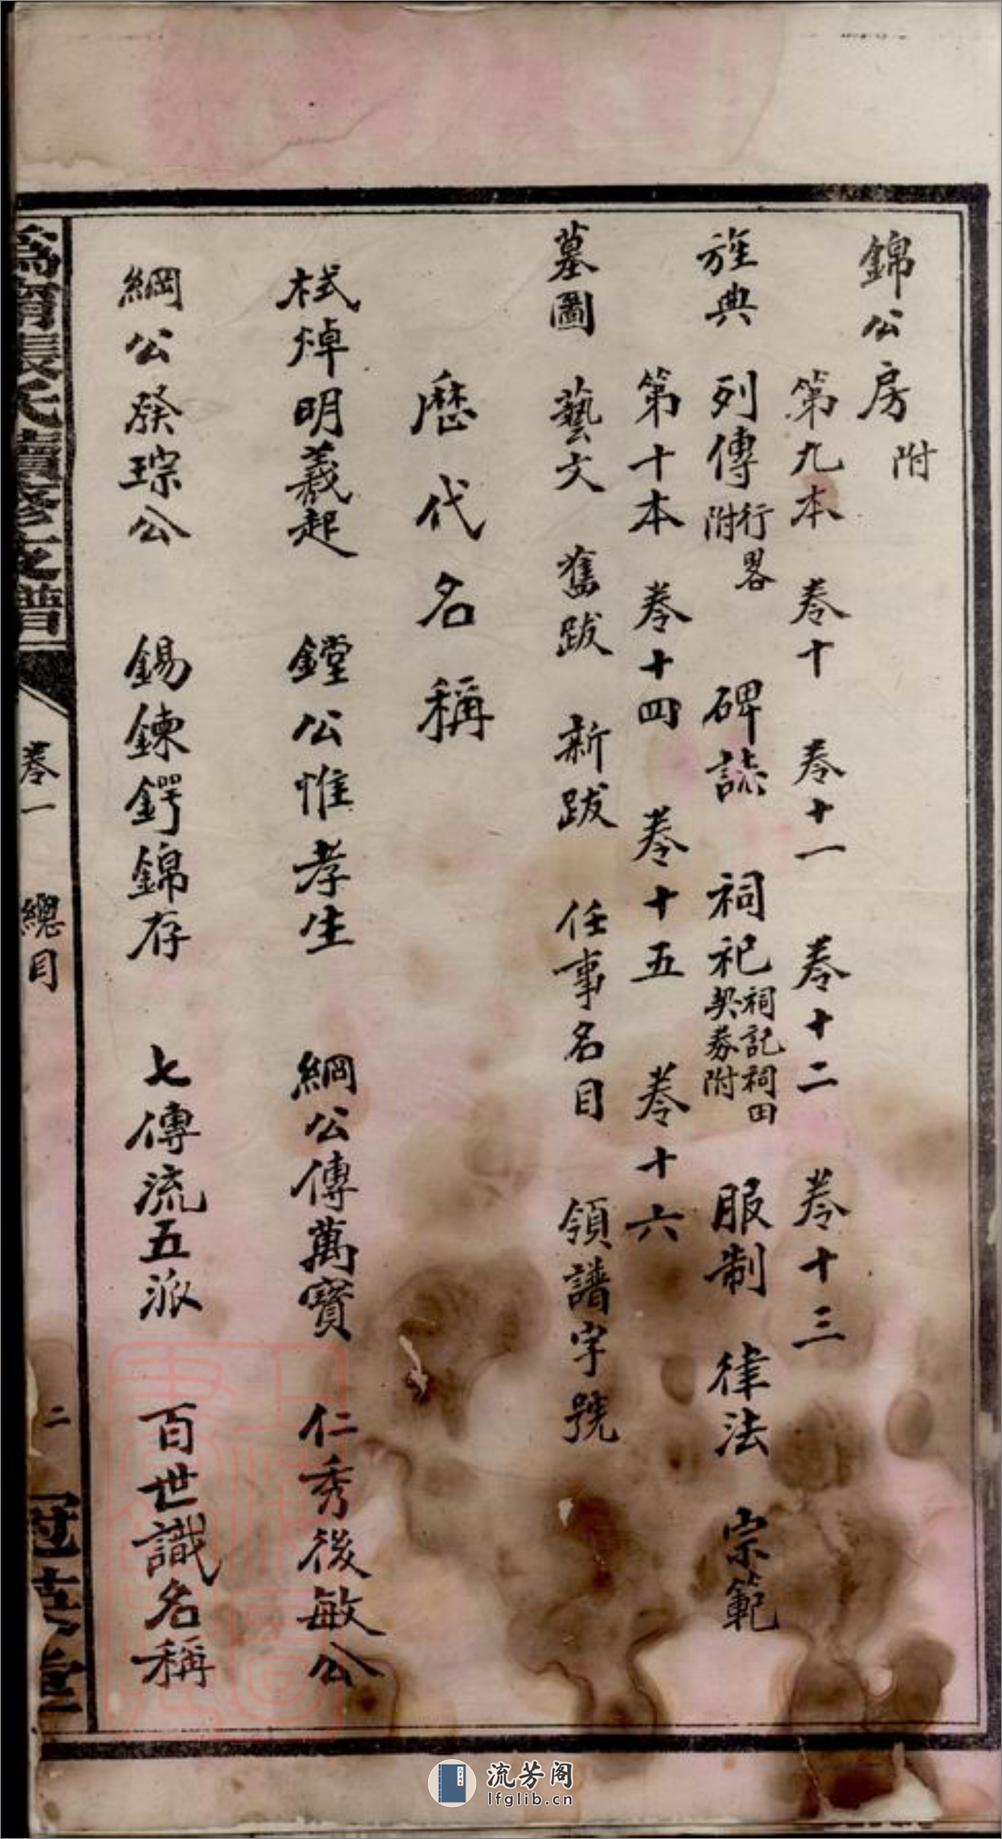 錦公房附
第九本 卷十 卷十一 卷十二 卷十三
旌典 列傳行畧附 碑誌 祠祀祠記祠田契券附 服制 律法 宗範
第十本 卷十四 卷十五 卷十六
墓圖 藝文 舊跋 新跋 任事名目 領譜字號
歷代名稱
栻焯明義起 鏜公惟孝生 綱公傳萬寶 仁秀後敏公
綱公發琮公 錫鍊鍔錦存 七傳流五派 百世識名稱
張氏續修支譜 卷一 總目 二 冠英堂
流芳阁
lfglib.cn